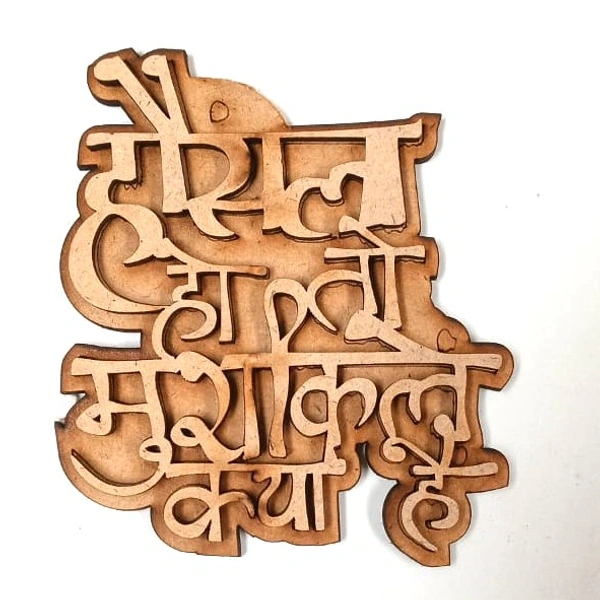 हौसला
हो तो
मुश्किलें
क्या है